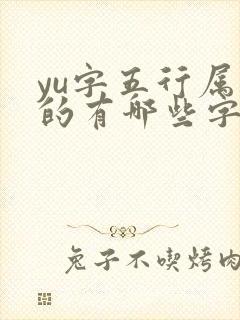 yu字五行属
的有哪些字
兔子不喫烤肉